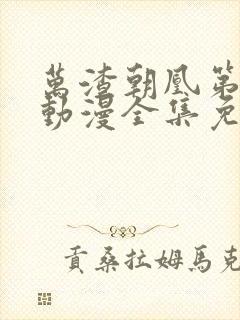 萬渣朝凰第
動漫全集免
貢桑拉姆馬克